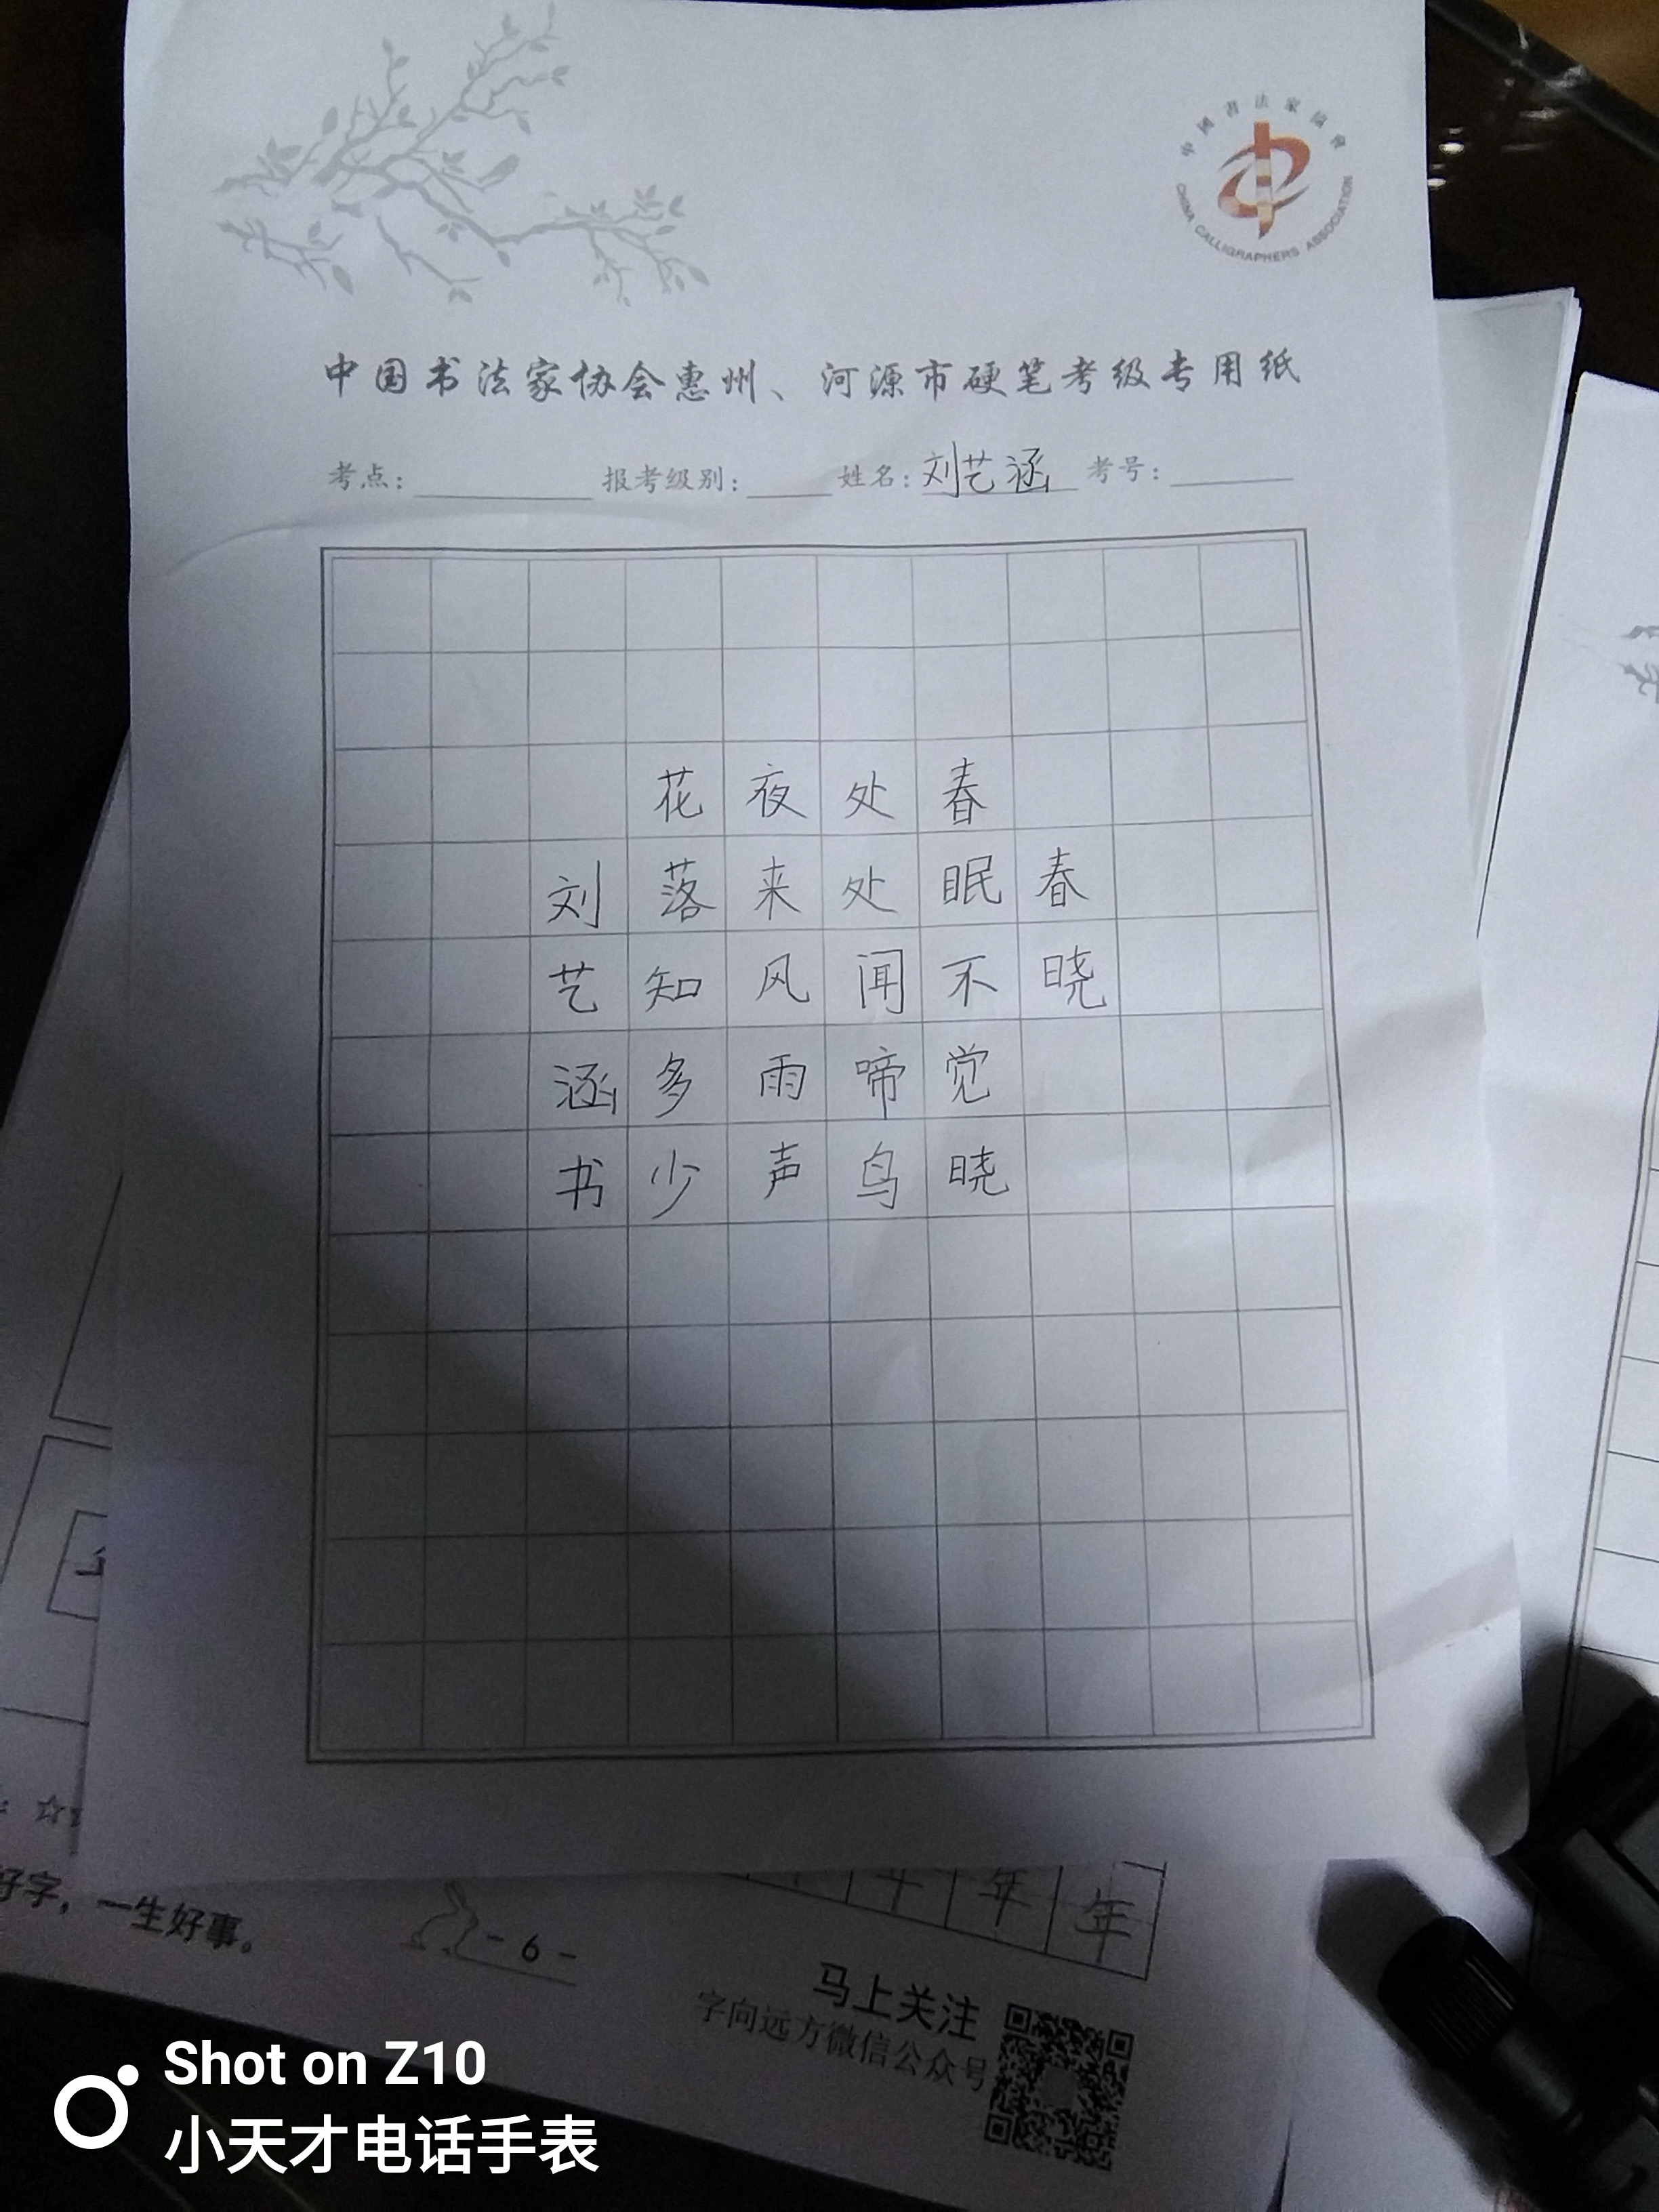 中國書法家協會
CHINA CALLIGRAPHERS ASSOCIATION
中国书法家协会惠州、河源市硬笔考级专用纸
考点: 报考级别: 姓名: 刘艺涵 考号:
春晓
春眠不觉晓
处处闻啼鸟
夜来风雨声
花落知多少
刘艺涵书
年 年
好字，一生好事。
- 6 -
马上关注
字向远方微信公众号
Shot on Z10
小天才电话手表